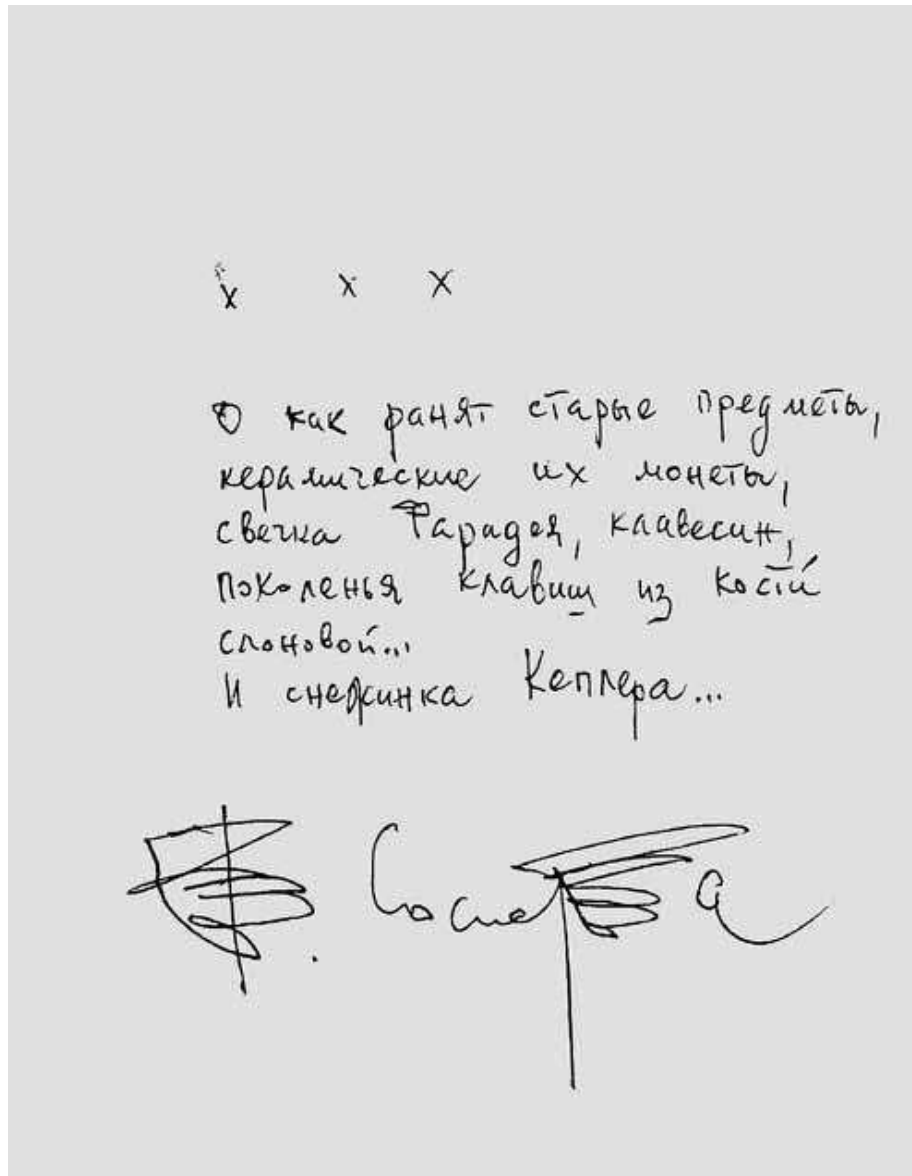 х х х
О как ранят старые предметы,
керамические их монеты,
свечка Фарадея, клавесин,
поколенья клавиш из кости
слоновой...
И снежинка Кеплера...